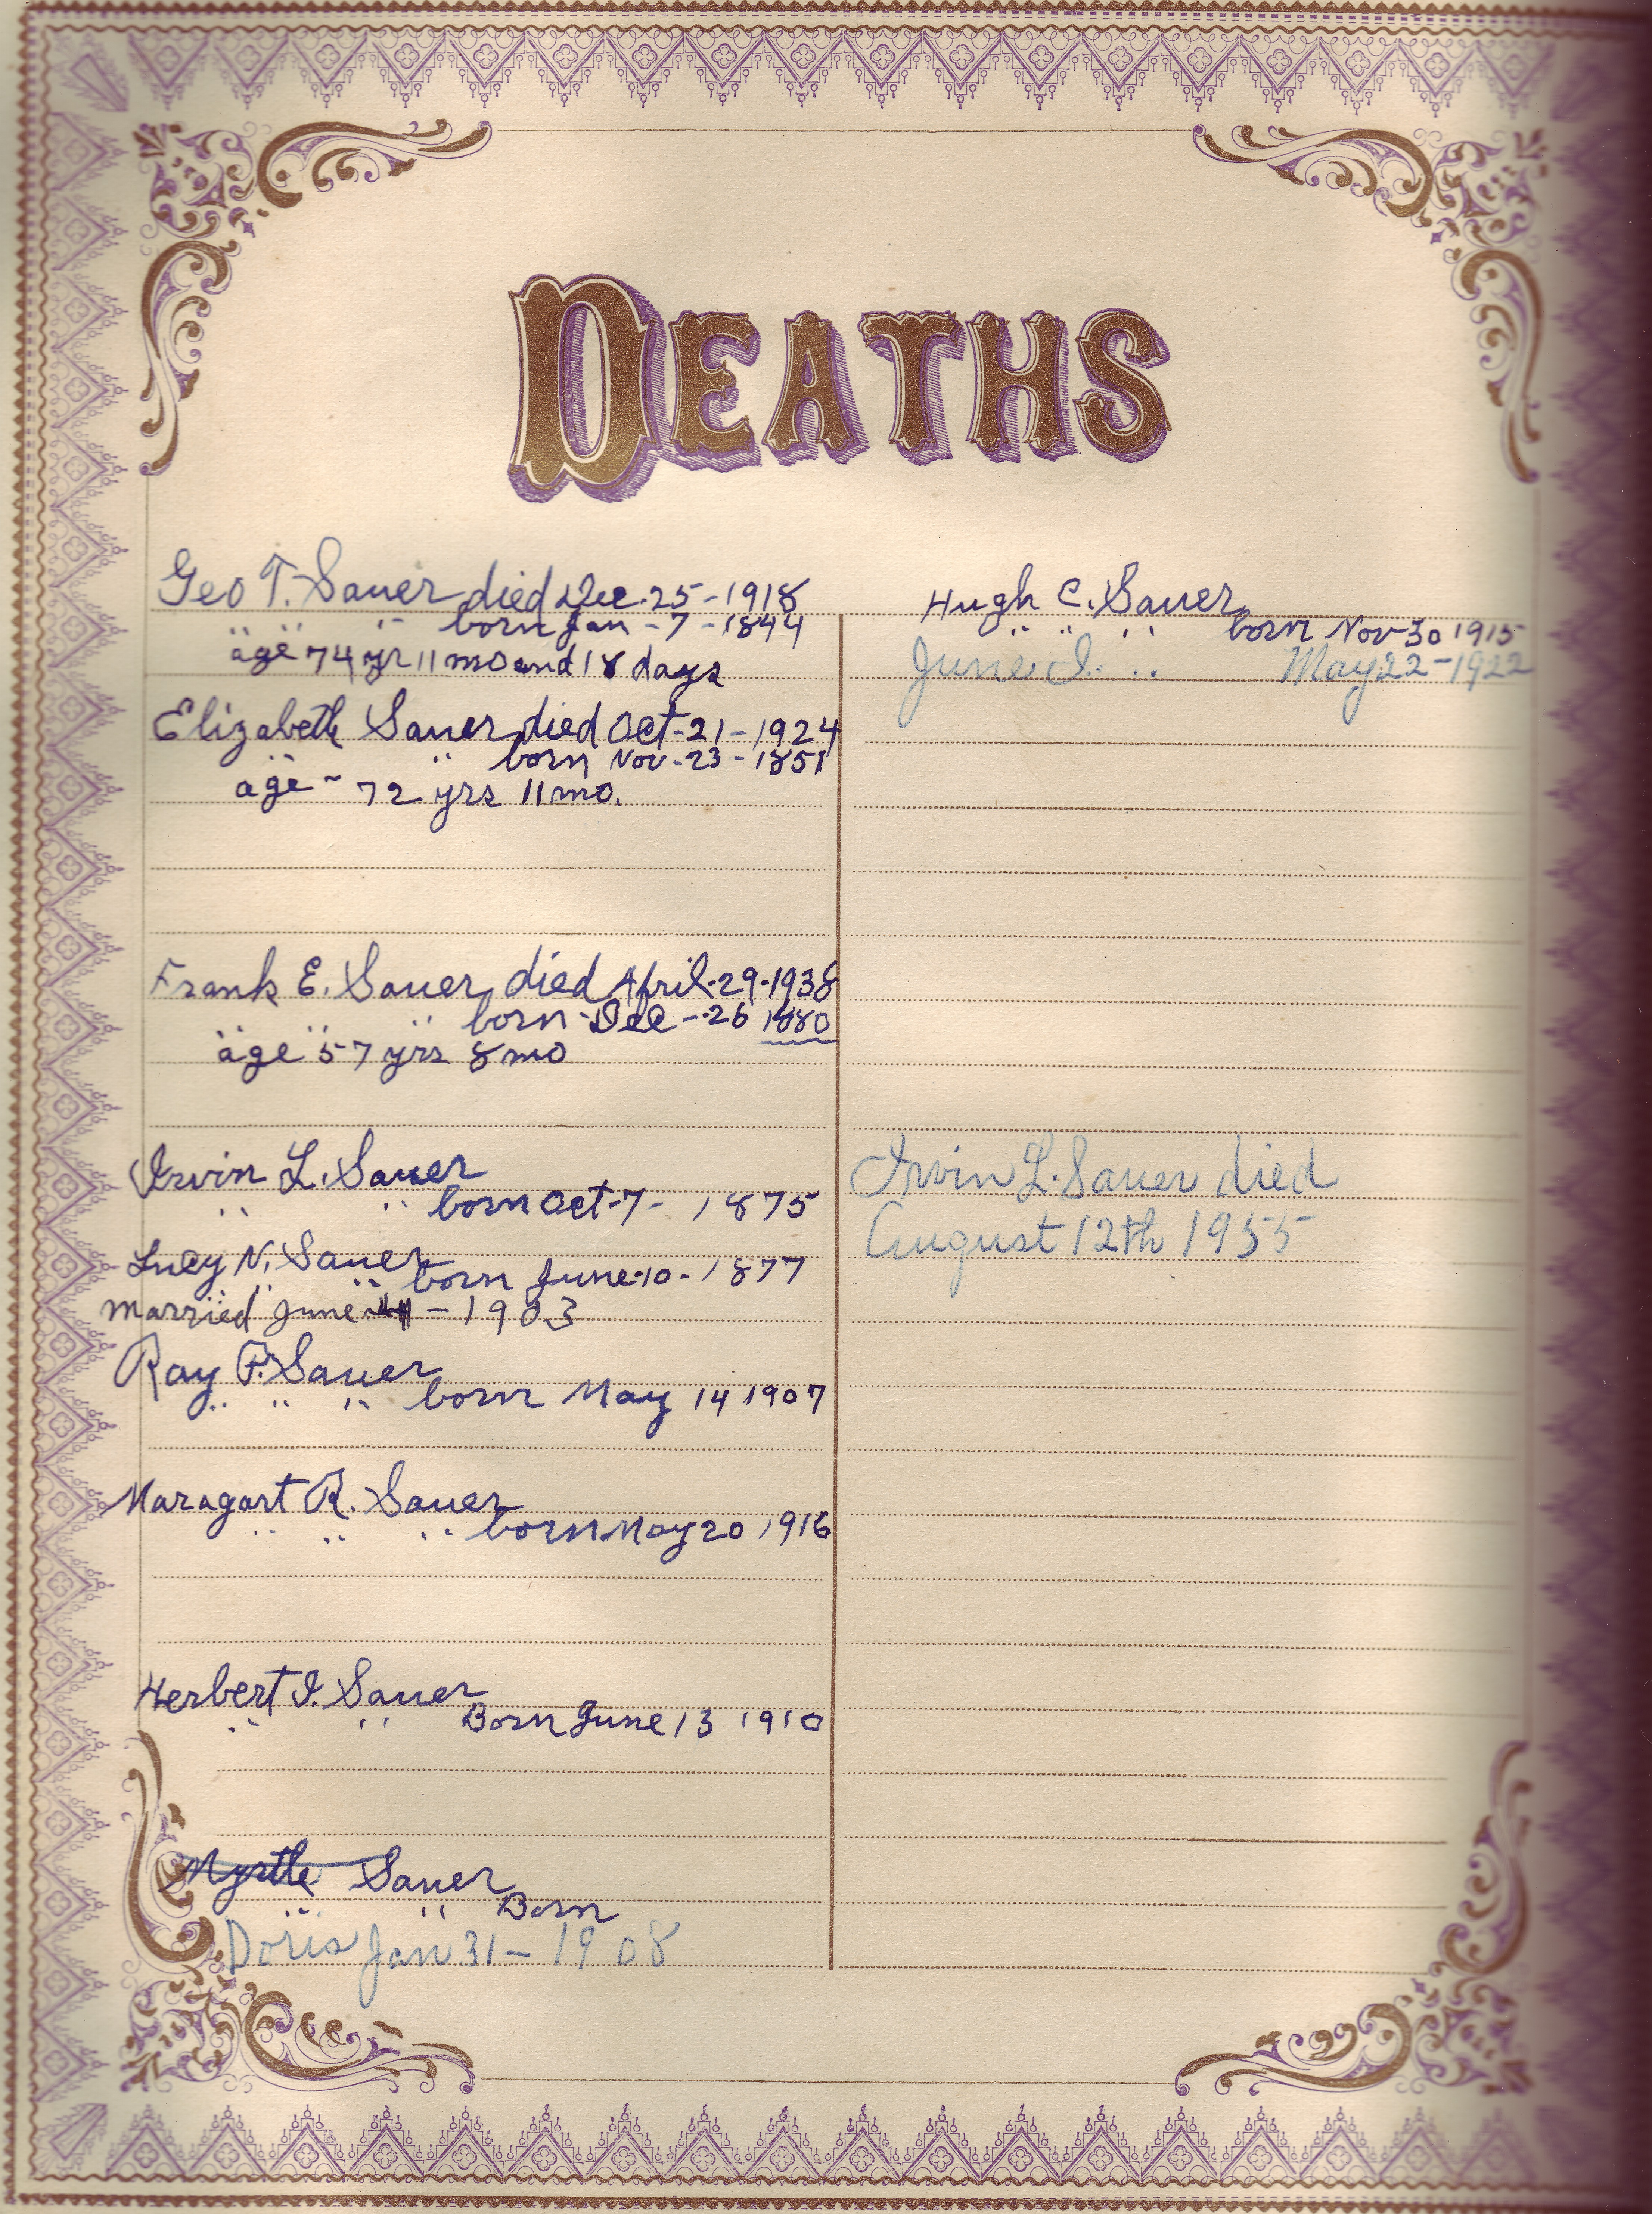 DEATHS
Geo T. Sauer died Dec. 25 - 1918
" " " born Jan - 7 - 1844
age 74 yr 11 mo and 18 days
Elizabeth Sauer died Oct - 21 - 1924
" " born Nov - 23 - 1851
age - 72 yrs 11 mo.
Frank E. Sauer died April - 29 - 1938
" " " born - Dec - 26 1880
age 57 yrs 8 mo
Irvin L. Sauer
" " born Oct - 7 - 1875
Lucy N. Sauer
" " born June - 10 - 1877
married June - 1903
Ray P. Sauer
" " " born May 14 1907
Maragart R. Sauer
" " " born May 20 1916
Herbert I. Sauer
" " Born June 13 1910
Myrtle Sauer
" " Born
Doris Jan 31 - 1908
Hugh C. Sauer
" " " born Nov 30 1915
June I. " May 22 - 1922
Irvin L. Sauer died
August 12th 1955